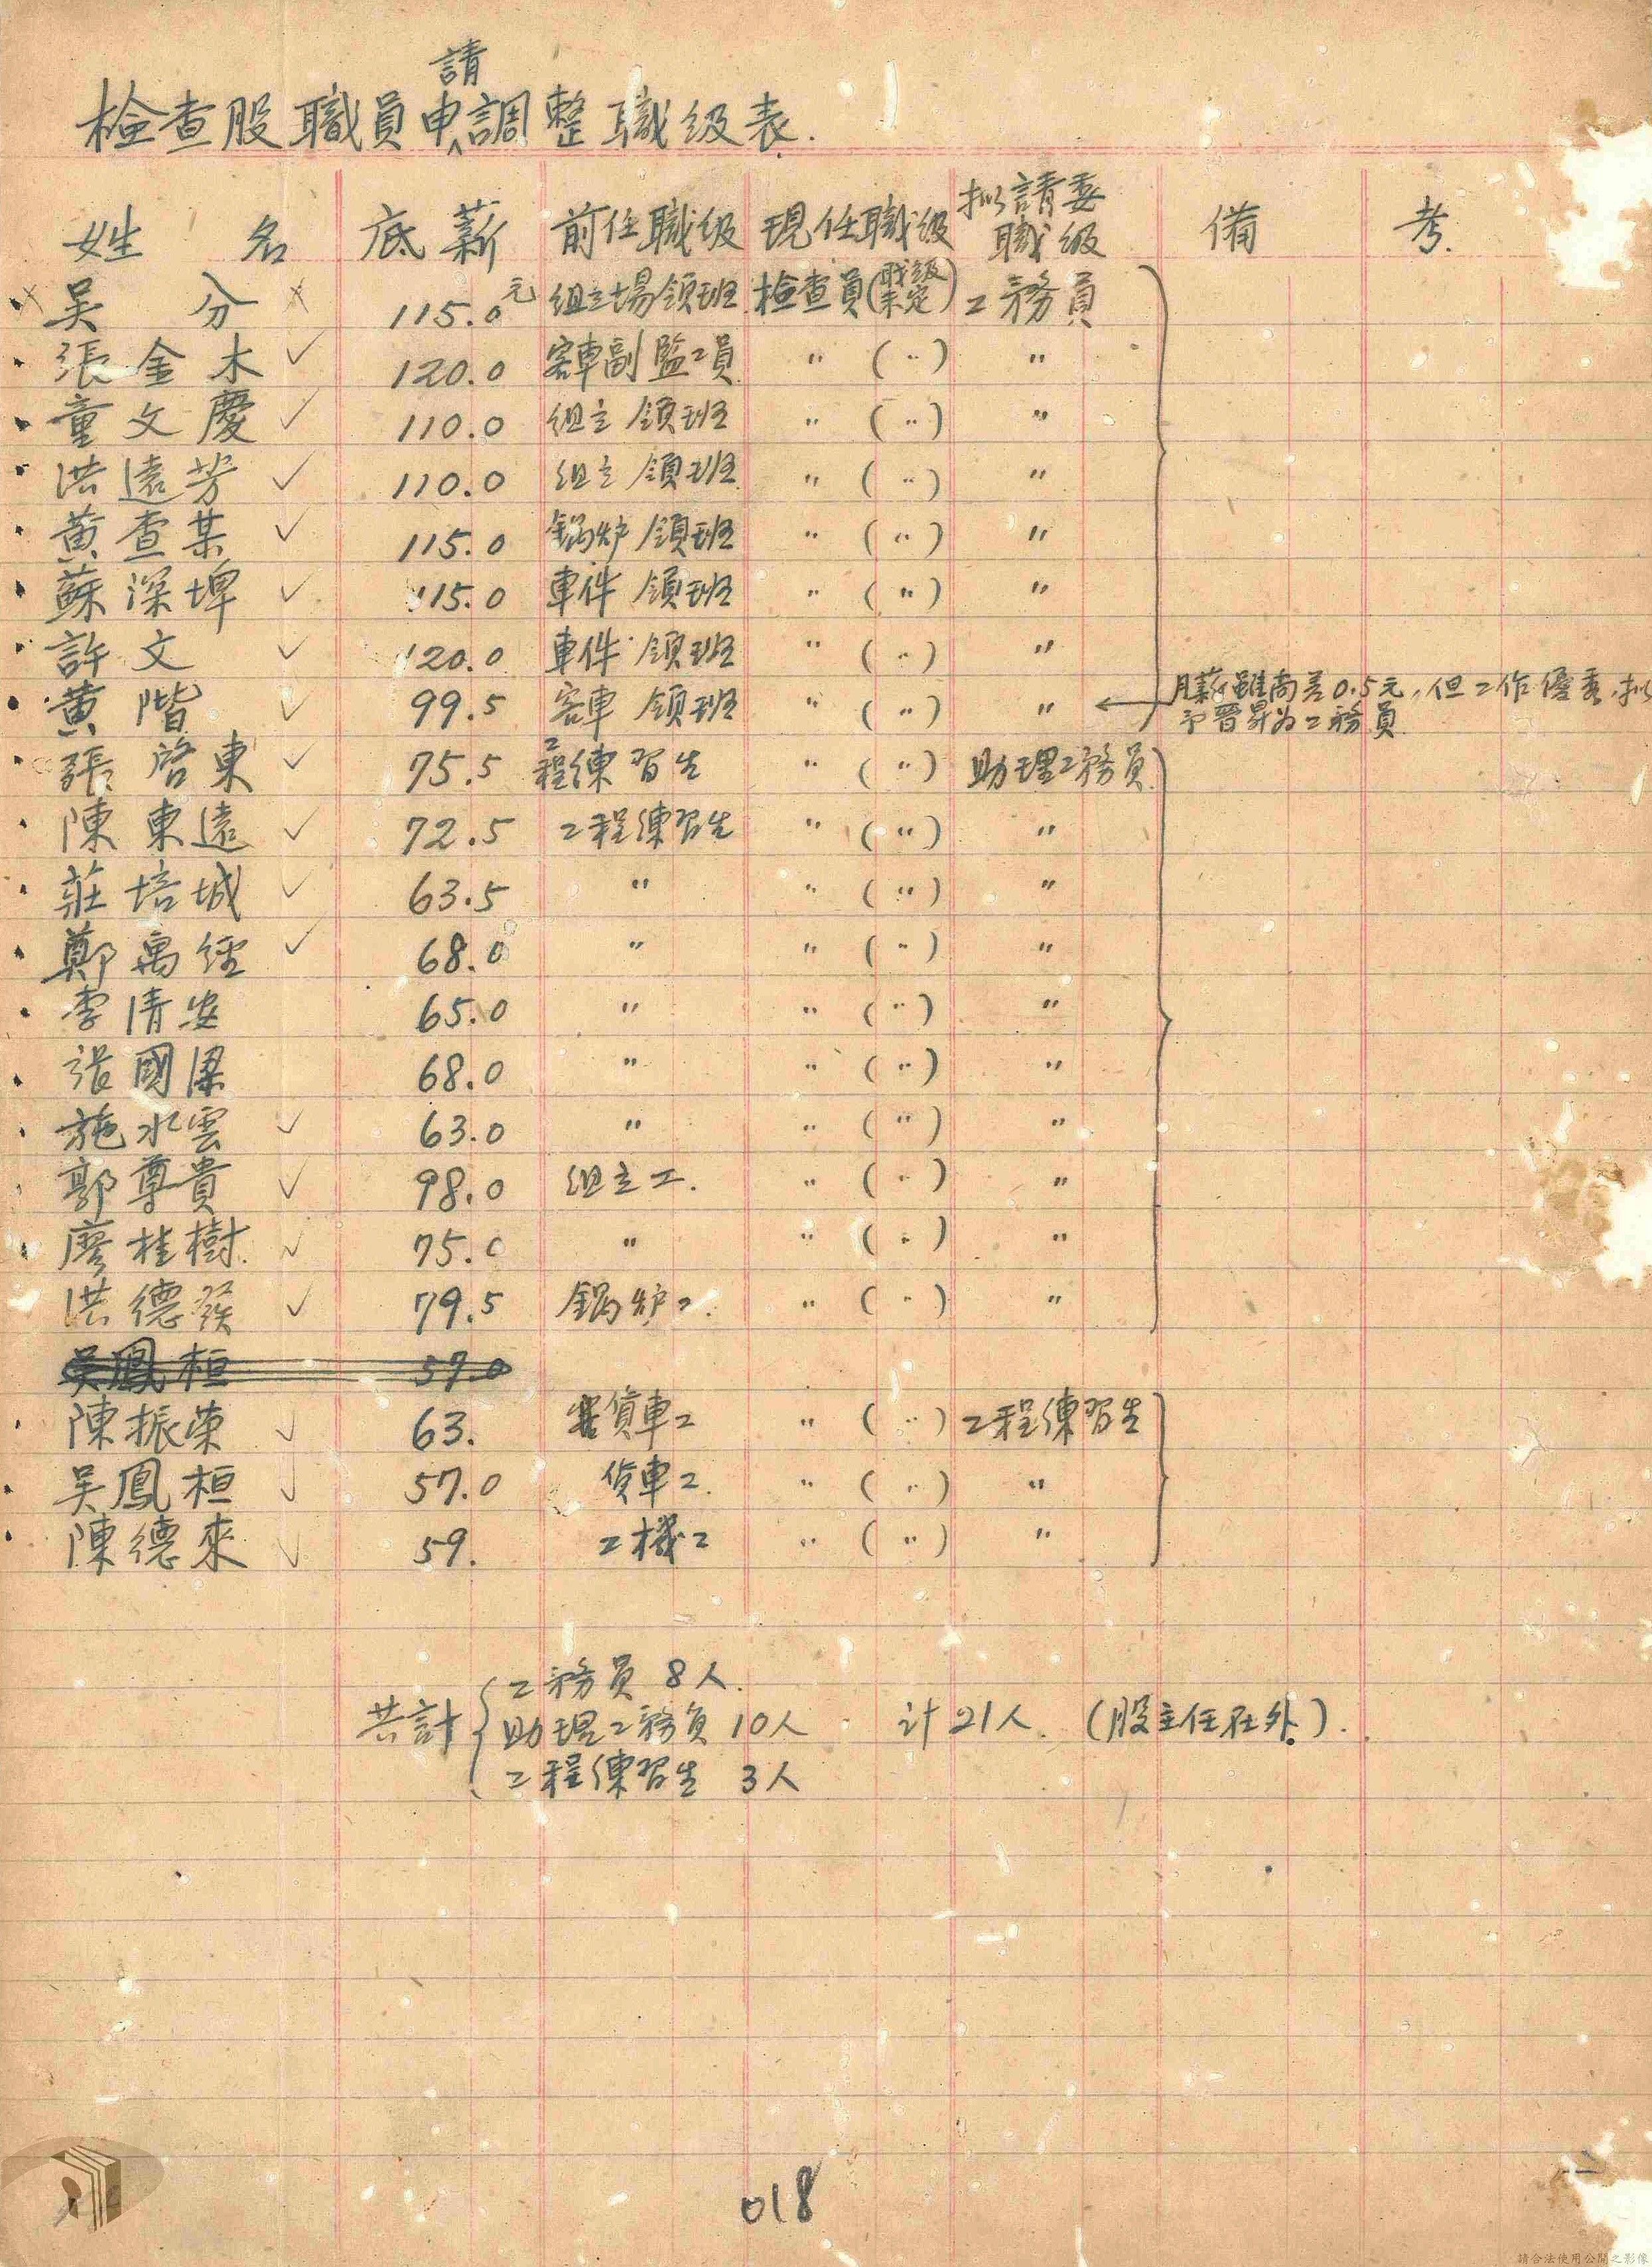 檢查股職員申請調整職級表.
姓名 底薪 前任職級 現任職級 拟請委職級 備考.
吳分 115.0元 組立場領班 檢查員(職級未定)工務員
張金木 120.0 客車副監工員 〃 (〃) 〃
童文慶 110.0 組立領班 〃 (〃) 〃
洪遠芳 110.0 組立領班 〃 (〃) 〃
黃查某 115.0 鍋炉領班 〃 (〃) 〃
蘇深埤 115.0 車件領班 〃 (〃) 〃
許文 120.0 車件領班 〃 (〃) 〃
黃階 99.5 客車領班 〃 (〃) 〃 月薪雖尚差0.5元,但工作優秀,拟
予晉昇為工務員
張啓東 75.5 工程練習生 〃 (〃) 助理工務員
陳東遠 72.5 工程練習生 〃 (〃) 〃
莊培城 63.5 〃 〃 (〃) 〃
鄭萬經 68.0 〃 〃 (〃) 〃
李清安 65.0 〃 〃 (〃) 〃
張國梁 68.0 〃 〃 (〃) 〃
施水雲 63.0 〃 〃 (〃) 〃
郭尊貴 98.0 組立工. 〃 (〃) 〃
廖桂樹 75.0 〃 〃 (〃) 〃
洪德發 79.5 鍋炉工. 〃 (〃) 〃
吳鳳桓 57.0
陳振榮 63. 客貨車工 〃 (〃) 工程練習生
吳鳳桓 57.0 貨車工. 〃 (〃) 〃
陳德來 59. 工機工 〃 (〃) 〃
共計 工務員 8人.
助理工務員 10人. 計21人. (股主任在外).
工程練習生 3人
018
請合法使用公開之影像